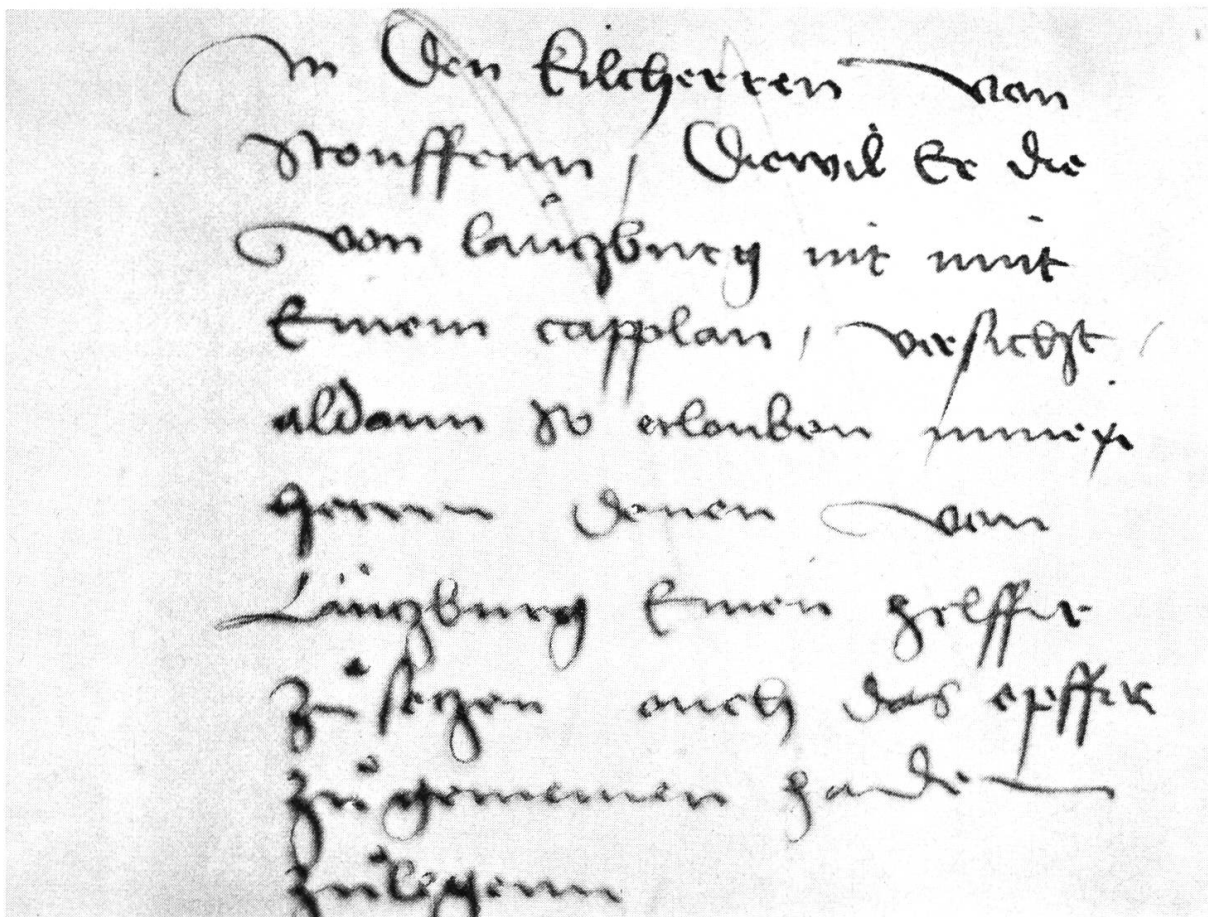 An den kilcherren von
Stouffenn / Diewil Er die
von läntzburg nit mit
Einem capplan / versicht /
aldann so erlouben min
herren denen von
Läntzburg Einen helffer
zů setzen ouch das opffer
zů gemeinen handen
zůlegenn